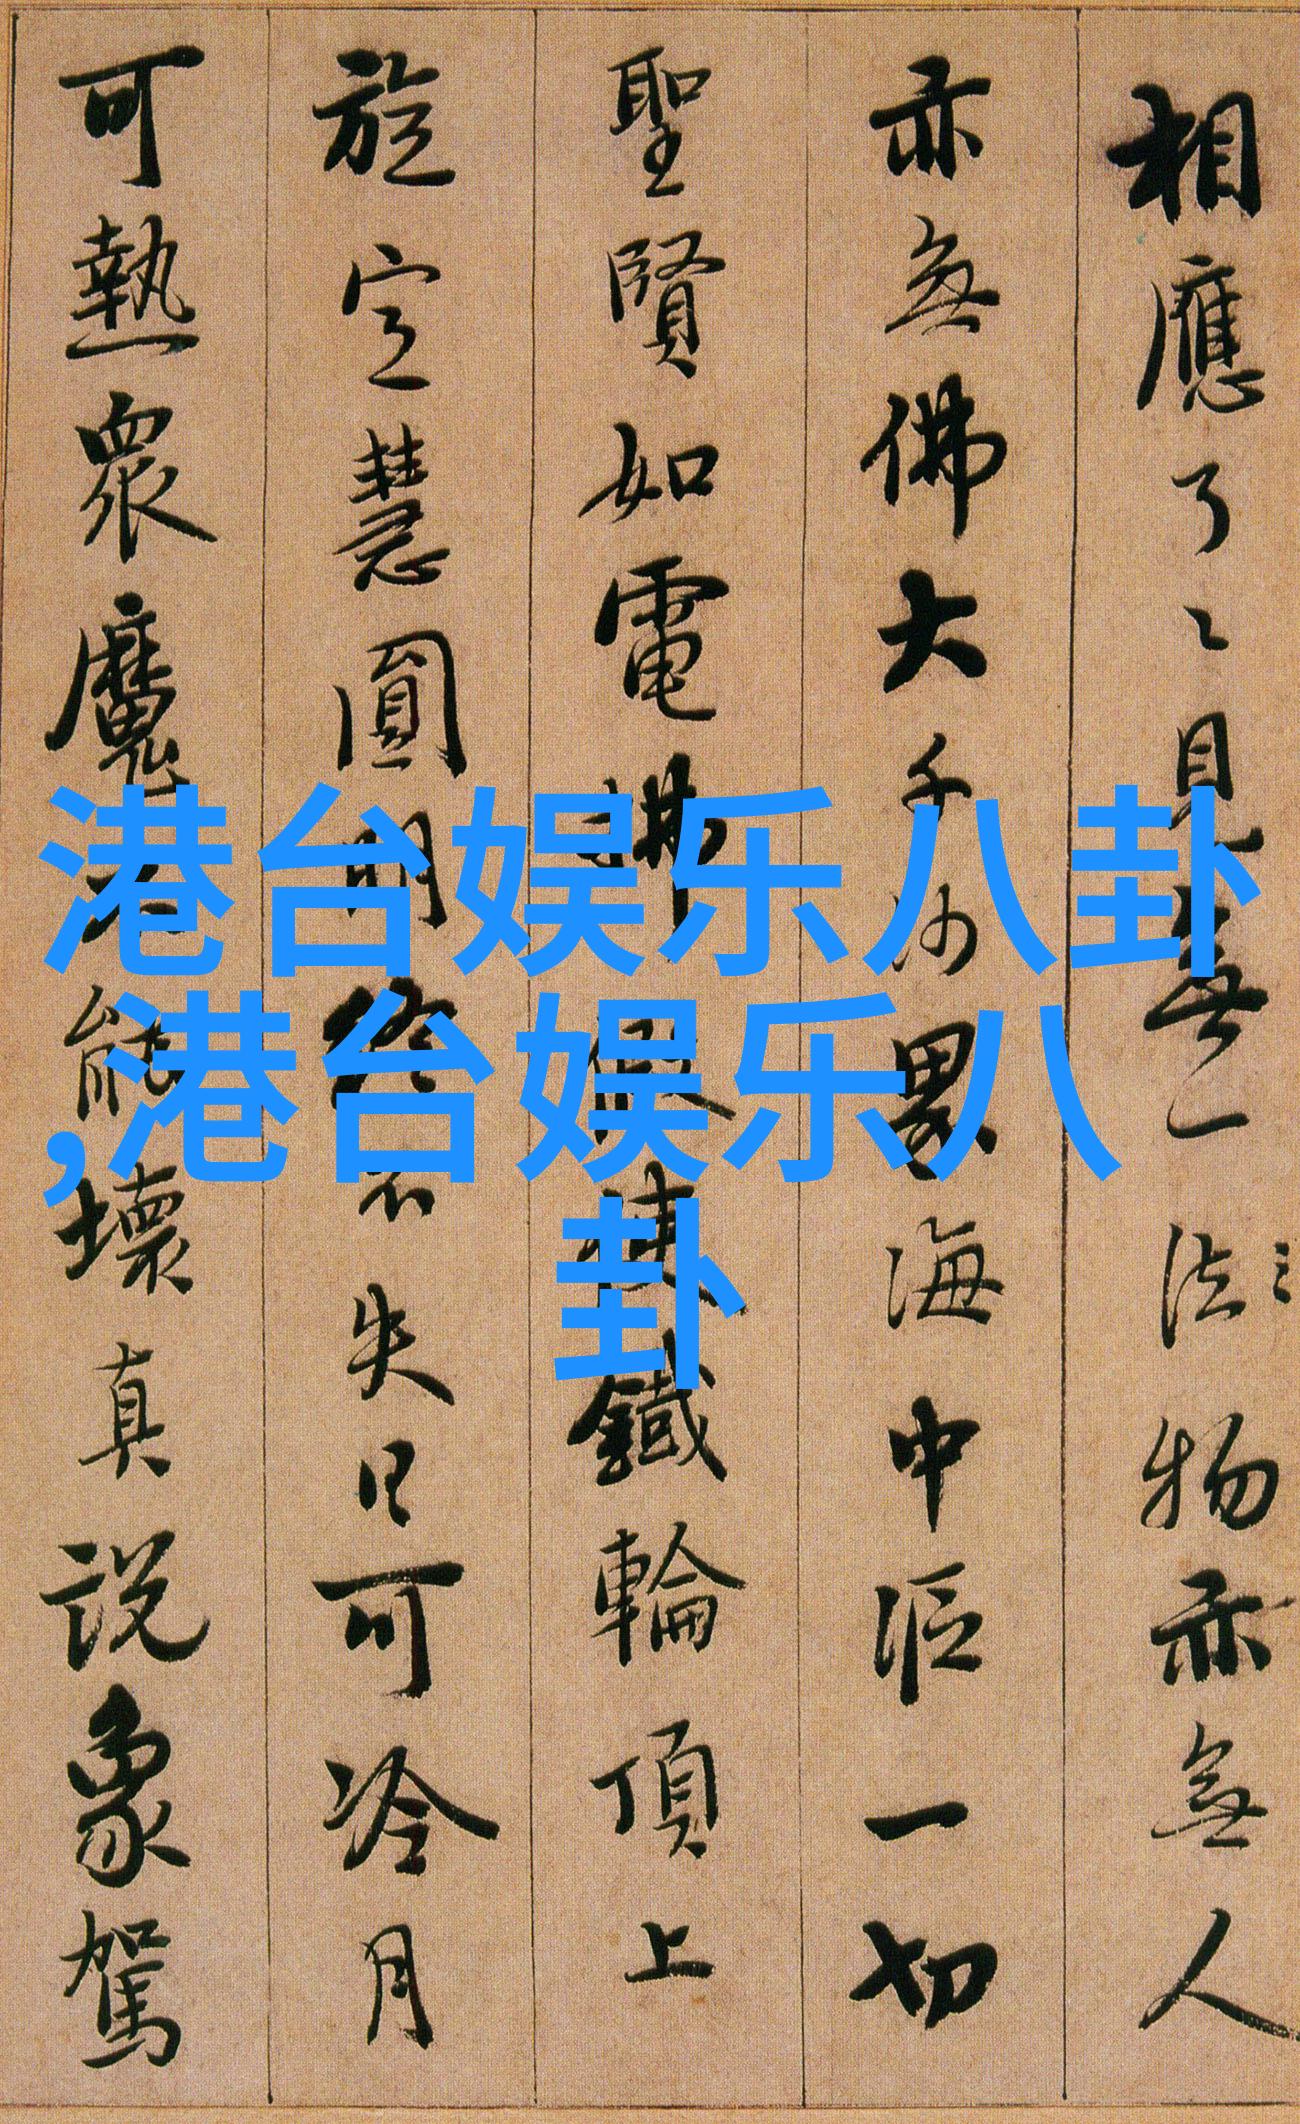 相應了〻見無一法
物亦無人
亦無佛大千沙界海中漚一切
聖賢如電拂假使鐵輪頂上
旋定慧圓明終不失日可冷月
可熱眾魔不能壞真說象駕
港台娱乐八卦
,港台娱乐八
卦